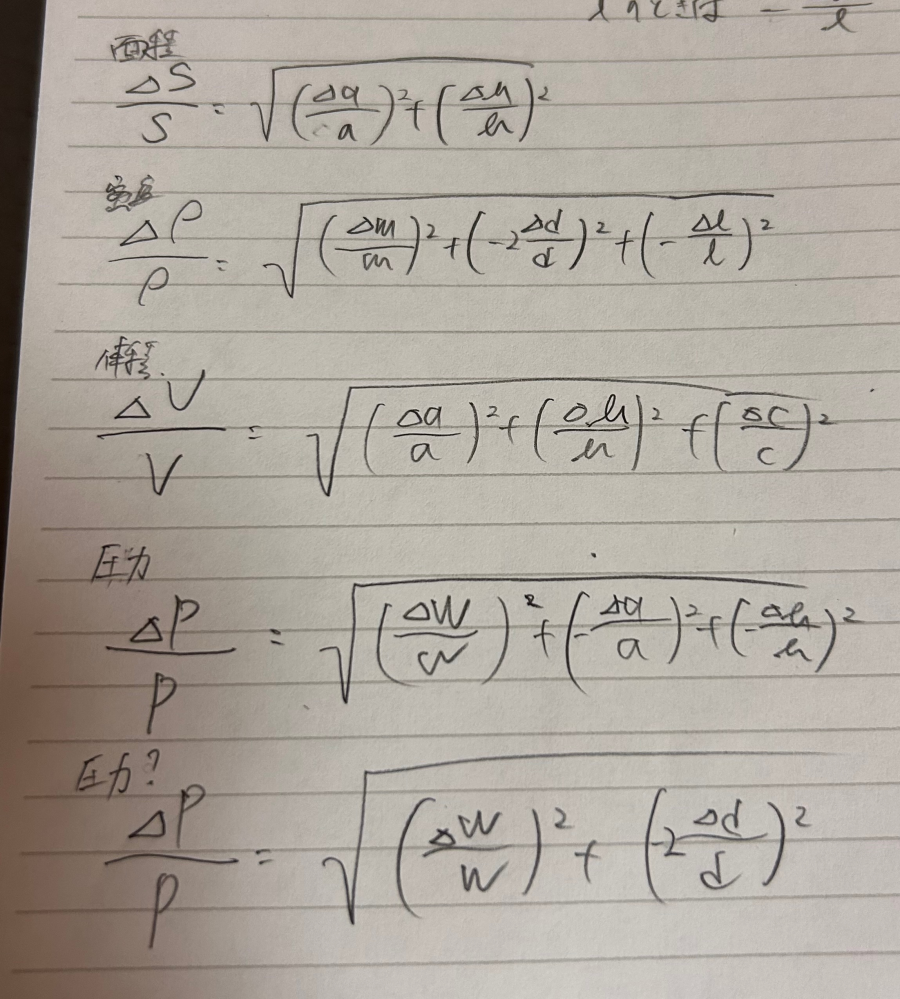 面積
ΔS/S = √((Δa/a)² + (Δb/b)²)
密度
Δρ/ρ = √((Δm/m)² + (-2Δd/d)² + (-Δl/l)²)
体積.
ΔV/V = √((Δa/a)² + (Δb/b)² + (Δc/c)²)
圧力
ΔP/P = √((ΔW/W)² + (-Δa/a)² + (-Δb/b)²)
圧力?
ΔP/P = √((ΔW/W)² + (-2Δd/d)²)